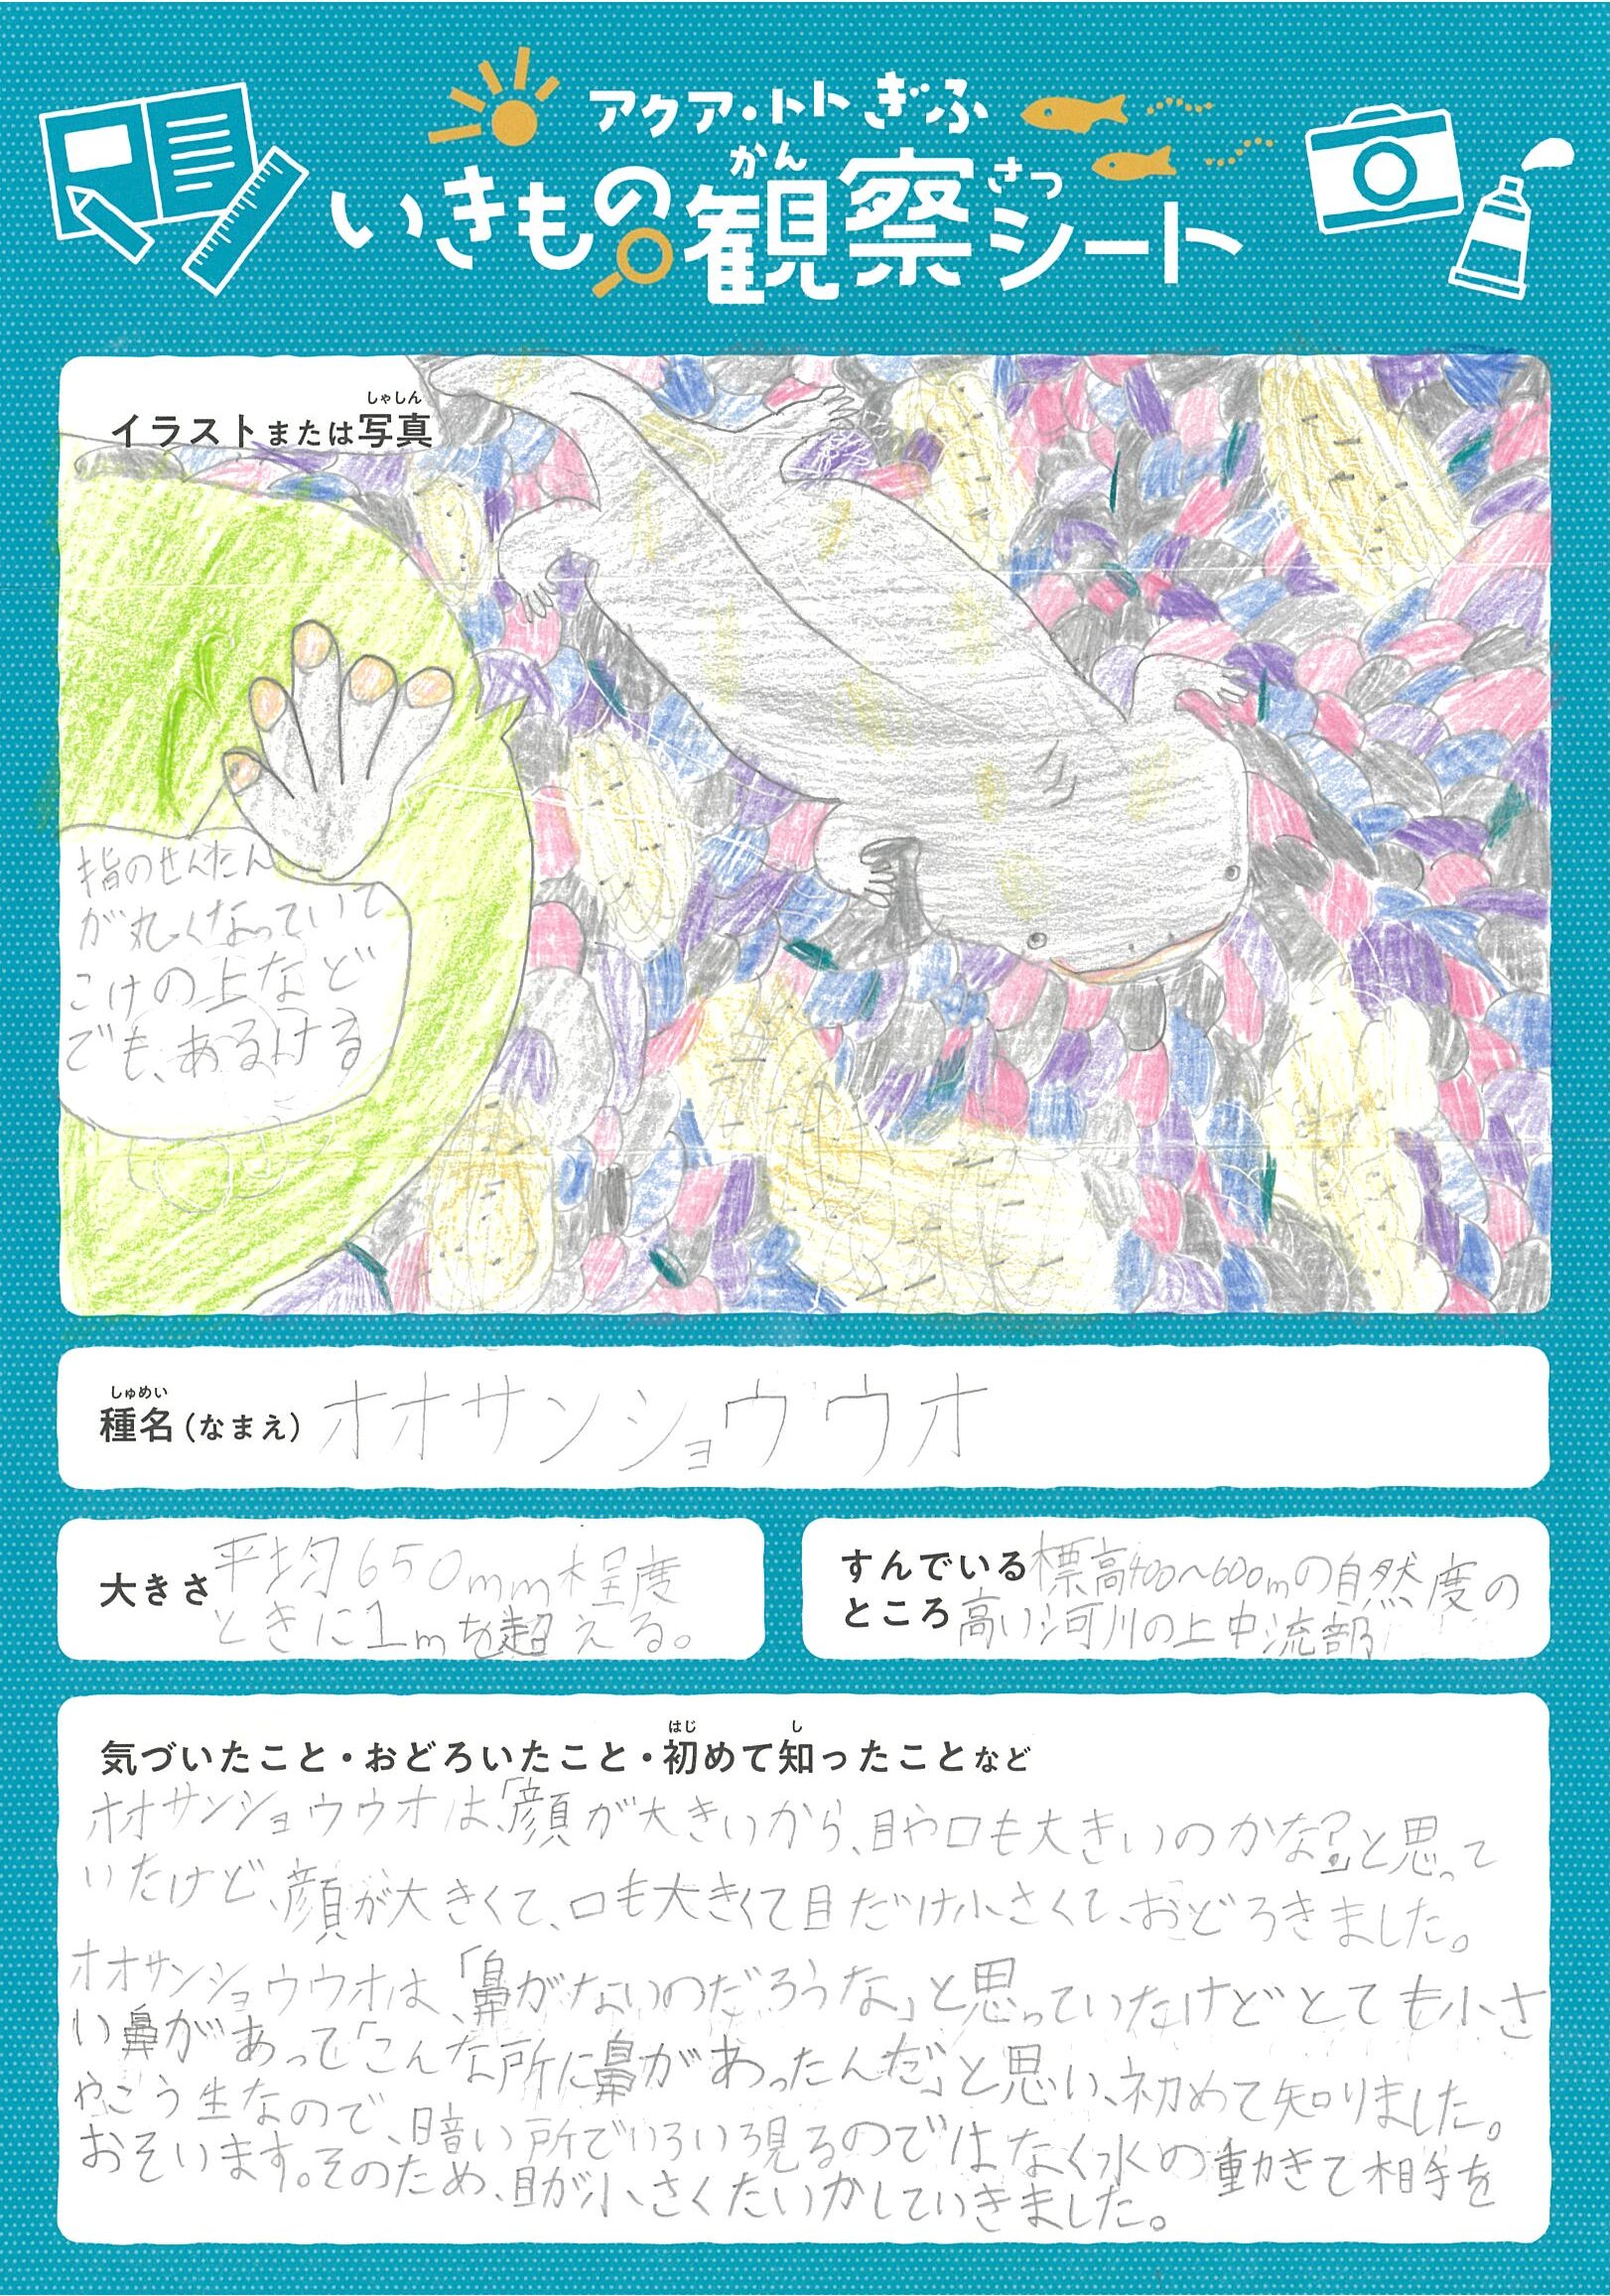 アクア・トト ぎふ
いきもの観察シート
かん さつ
しゃしん
イラストまたは写真
指のせんたん
が丸くなっていて
こけの上など
でも、あるける
しゅめい
種名(なまえ) オオサンショウウオ
大きさ 平均650mm程度
ときに1mを超える。
すんでいる 標高400~600mの自然度の
ところ 高い河川の上中流部
はじ し
気づいたこと・おどろいたこと・初めて知ったことなど
オオサンショウウオは、「顔が大きいから、目や口も大きいのかな?」と思って
いたけど、顔が大きくて、口も大きくて目だけ小さくて、おどろきました。
オオサンショウウオは、「鼻がないのだろうな」と思っていたけどとても小さ
い鼻があって「こんな所に鼻があったんだ」と思い、初めて知りました。
やこう生なので、暗い所でいろいろ見るのではなく水の動きて相手を
おそいます。そのため、目が小さくたいかしていきました。